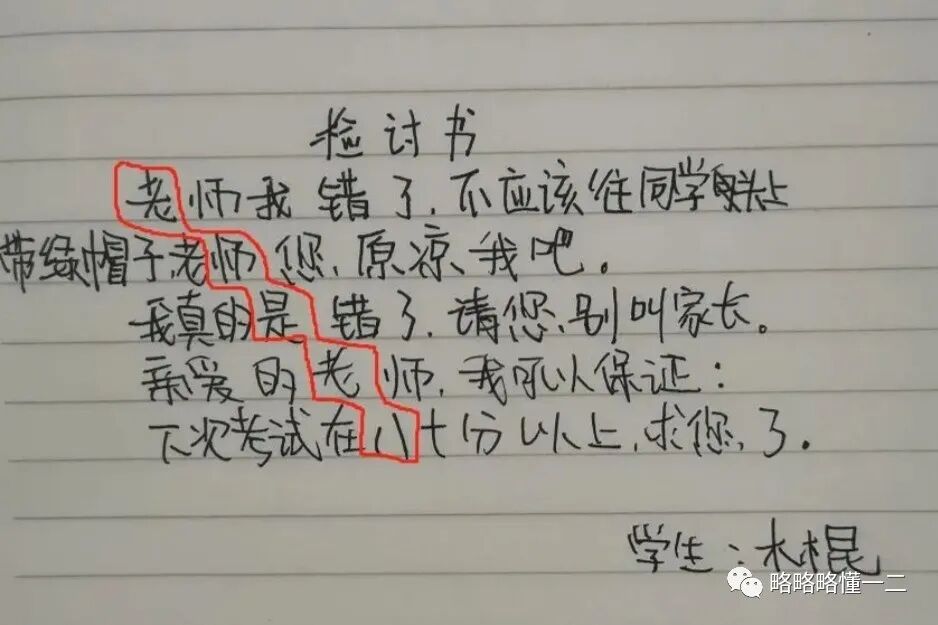 检讨书
老师我错了.不应该往同学头上
带绿帽子,老师您,原凉我吧。
我真的是错了.请您,别叫家长。
亲爱的老师,我可以保证:
下次考试在八十分以上,求您,了.
学生:木棍
略略略懂一二